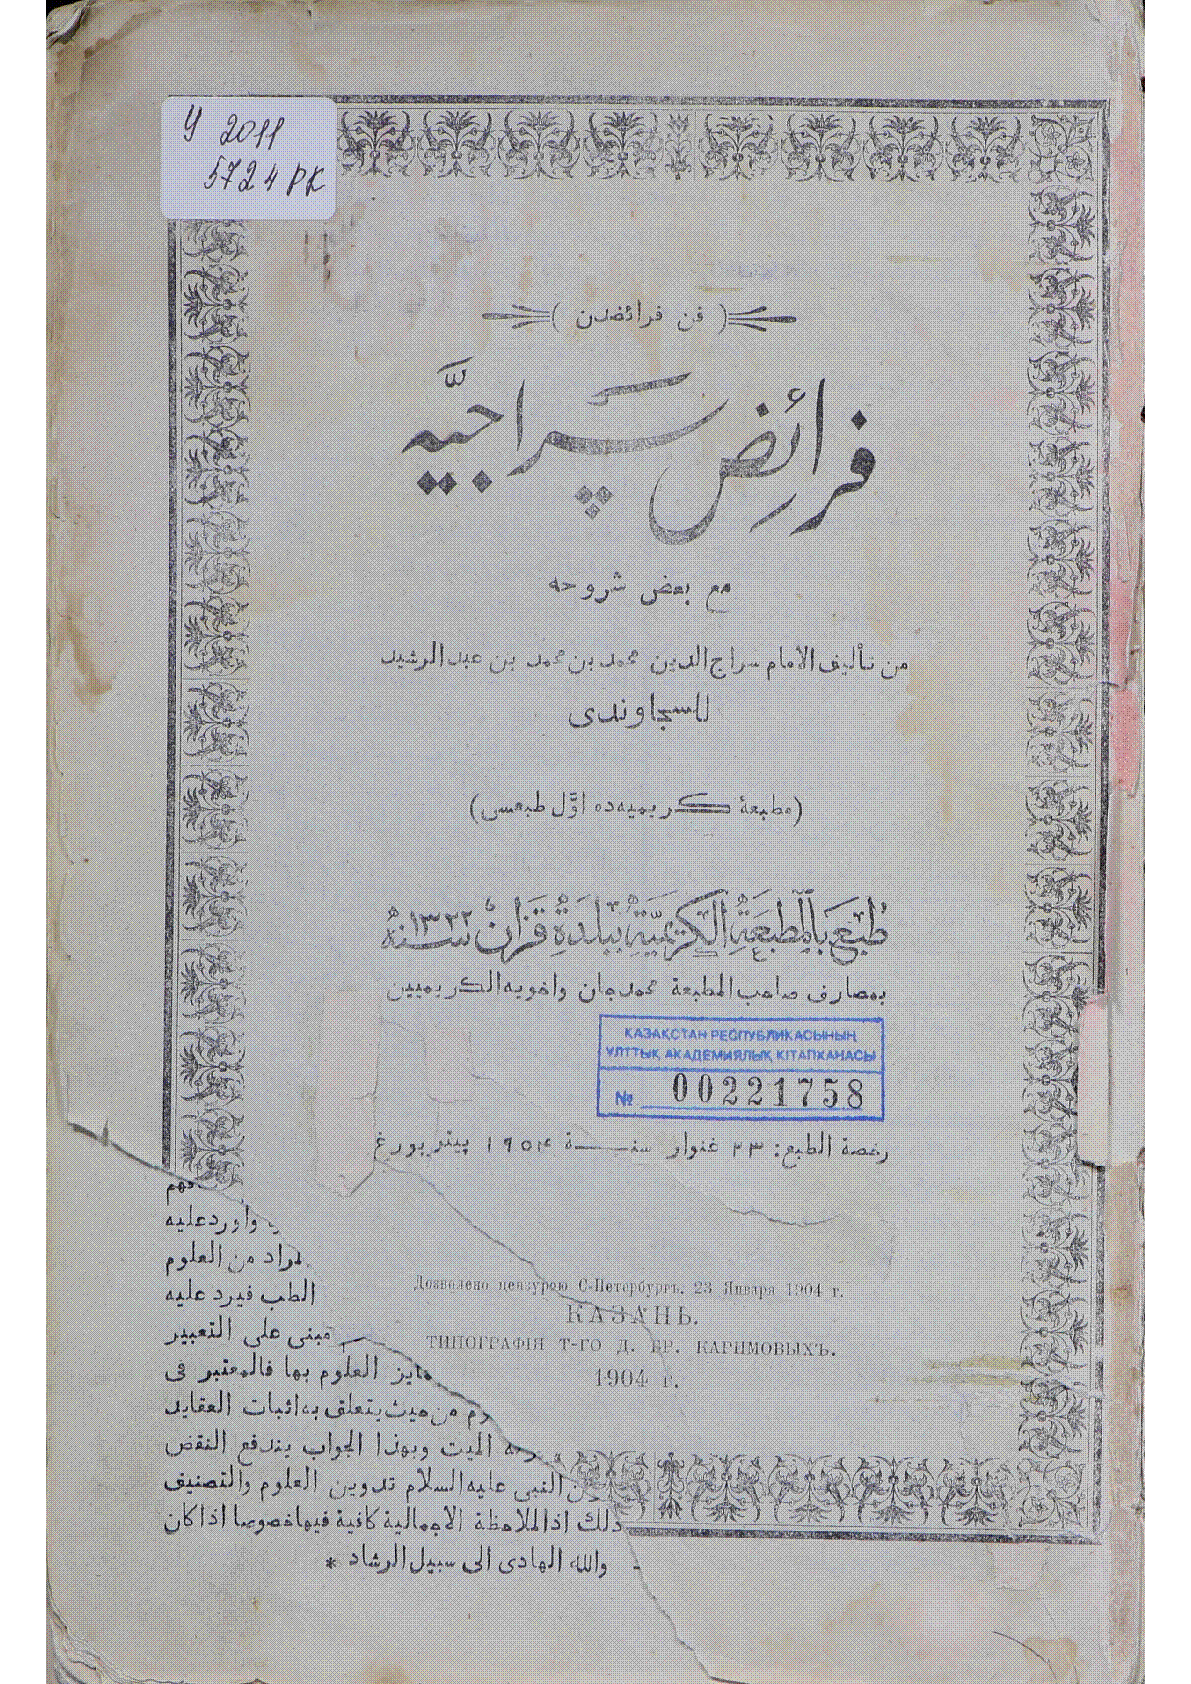 У 2011
5724 РК
( فن فرائضدن )
فرائض سراجيه
مع بعض شروحه
من تأليف الامام سراج الدين محمد بن محمد بن عبد الرشيد
السجاوندى
(مطبعۀ كريميه‌ده اوّل طبعسى)
طُبِعَ بِالْمَطْبَعَةِ الْكَرِيمِيَّةِ بِبَلْدَةِ قَزَانْ سنه ١٣٢٢
بمصارف صاحب المطبعة محمدجان واخويه الكريميين
ҚАЗАҚСТАН РЕСПУБЛИКАСЫНЫҢ
ҰЛТТЫҚ АКАДЕМИЯЛЫҚ КІТАПХАНАСЫ
№ 00221758
رخصة الطبع: ٢٣ غنوار سنة ١٩٠٤ پيتربورغ
فهم
واوردعليه
المراد من العلوم
الطب فيرد عليه
مبنى على التعبير
تمايز العلوم بها فالمعتبر فى
من حيث يتعلق به اثبات العقايد
الميت وبهذا الجواب يندفع النقض
النبى عليه السلام تدوين العلوم والتصنيف
ذلك اذ الملاحظة الاجمالية كافية فيها خصوصا اذا كان
والله الهادى الى سبيل الرشاد *
Дозволено цензурою С-Петербургъ. 23 Января 1904 г.
КАЗАНЬ.
ТИПОГРАФІЯ Т-ГО Д. БР. КАРИМОВЫХЪ.
1904 г.